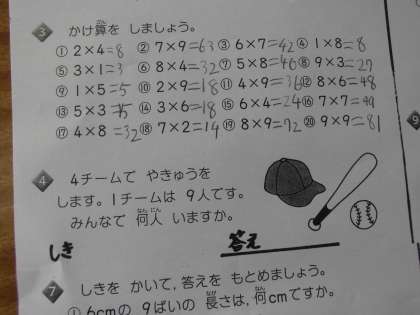 3 かけ算を しましょう。
① 2×4=8 ② 7×9=63 ③ 6×7=42 ④ 1×8=8
⑤ 3×1=3 ⑥ 8×4=32 ⑦ 5×8=40 ⑧ 9×3=27
⑨ 1×5=5 ⑩ 2×9=18 ⑪ 4×9=36 ⑫ 8×6=48
⑬ 5×3=15 ⑭ 3×6=18 ⑮ 6×4=24 ⑯ 7×7=49
⑰ 4×8=32 ⑱ 7×2=14 ⑲ 8×9=72 ⑳ 9×9=81
4 4チームで やきゅうを
します。1チームは 9人です。
みんなで 何人 いますか。
しき 答え
7 しきを かいて,答えを もとめましょう。
① 6cmの 9ばいの 長さは,何cmですか。
9